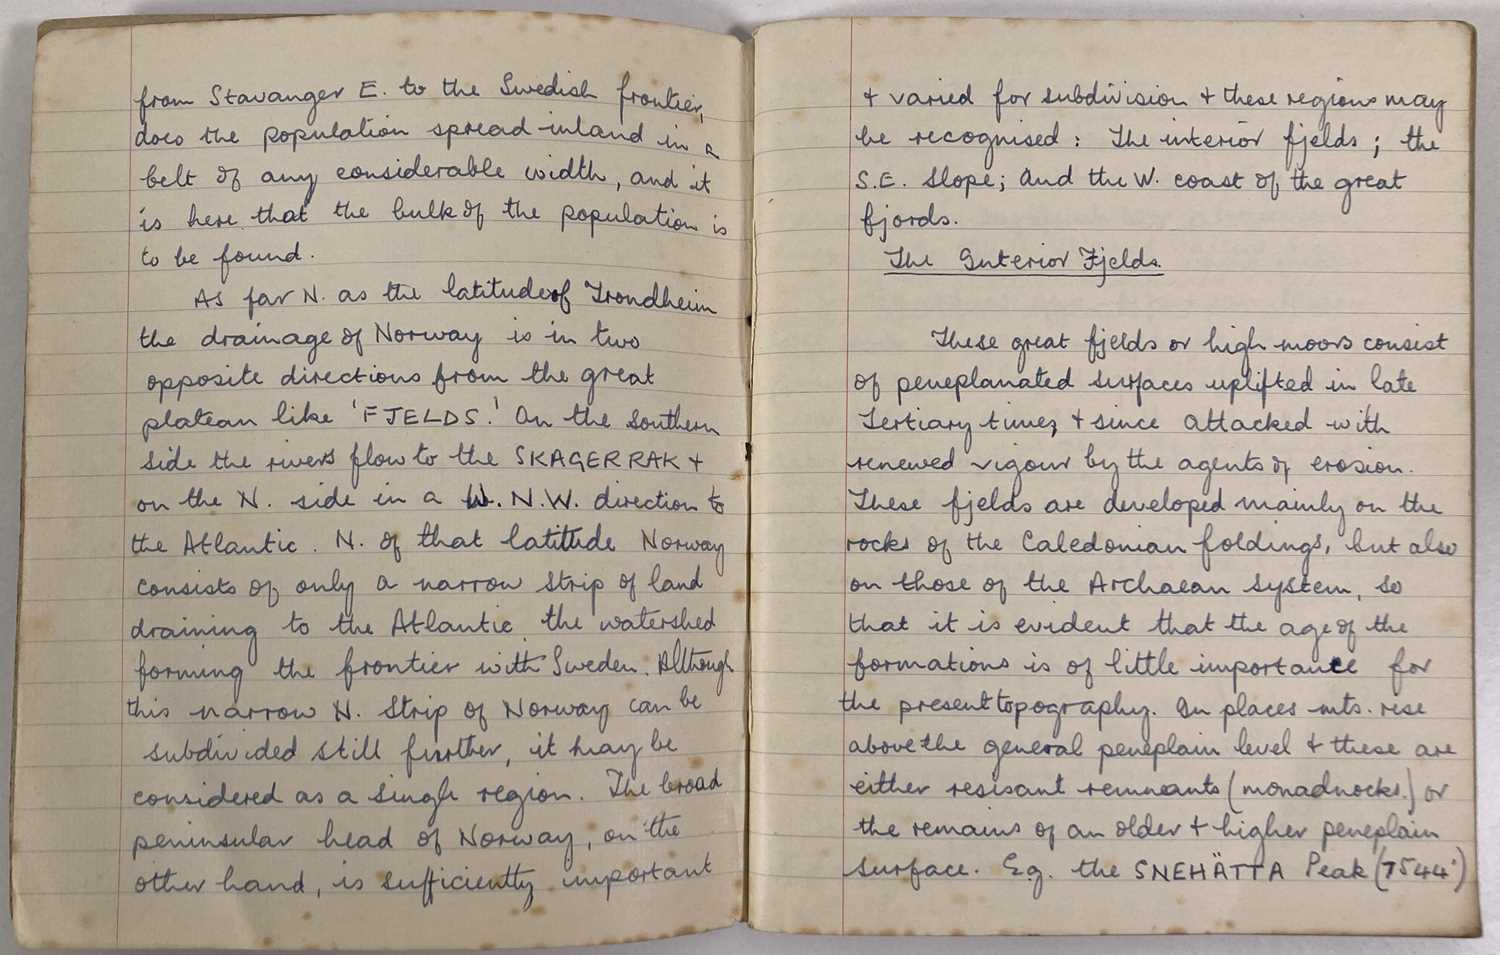 from Stavanger E. to the Swedish frontier,
does the population spread inland in a
belt of any considerable width, and it
is here that the bulk of the population is
to be found.
As far N. as the latitude of Trondheim
the drainage of Norway is in two
opposite directions from the great
plateau like 'FJELDS.' On the southern
side the rivers flow to the SKAGERRAK +
on the N. side in a W.N.W. direction to
the Atlantic. N. of that latitude Norway
consists of only a narrow strip of land
draining to the Atlantic, the watershed
forming the frontier with Sweden. Although
this narrow N. Strip of Norway can be
subdivided still further, it may be
considered as a single region. The broad
peninsular head of Norway, on the
other hand, is sufficiently important
+ varied for subdivision + these regions may
be recognised: The interior fjelds; the
S.E. slope; and the W. coast of the great
fjords.
The Interior Fjelds.
These great fjelds or high moors consist
of peneplanated surfaces uplifted in late
Tertiary times, + since attacked with
renewed vigour by the agents of erosion.
These fjelds are developed mainly on the
rocks of the Caledonian foldings, but also
on those of the Archaean system, so
that it is evident that the age of the
formations is of little importance for
the present topography. In places mts. rise
above the general peneplain level + these are
either resisant remneants (monadnocks.) or
the remains of an older + higher peneplain
surface. E.g. the SNEHÄTTA Peak (7544')